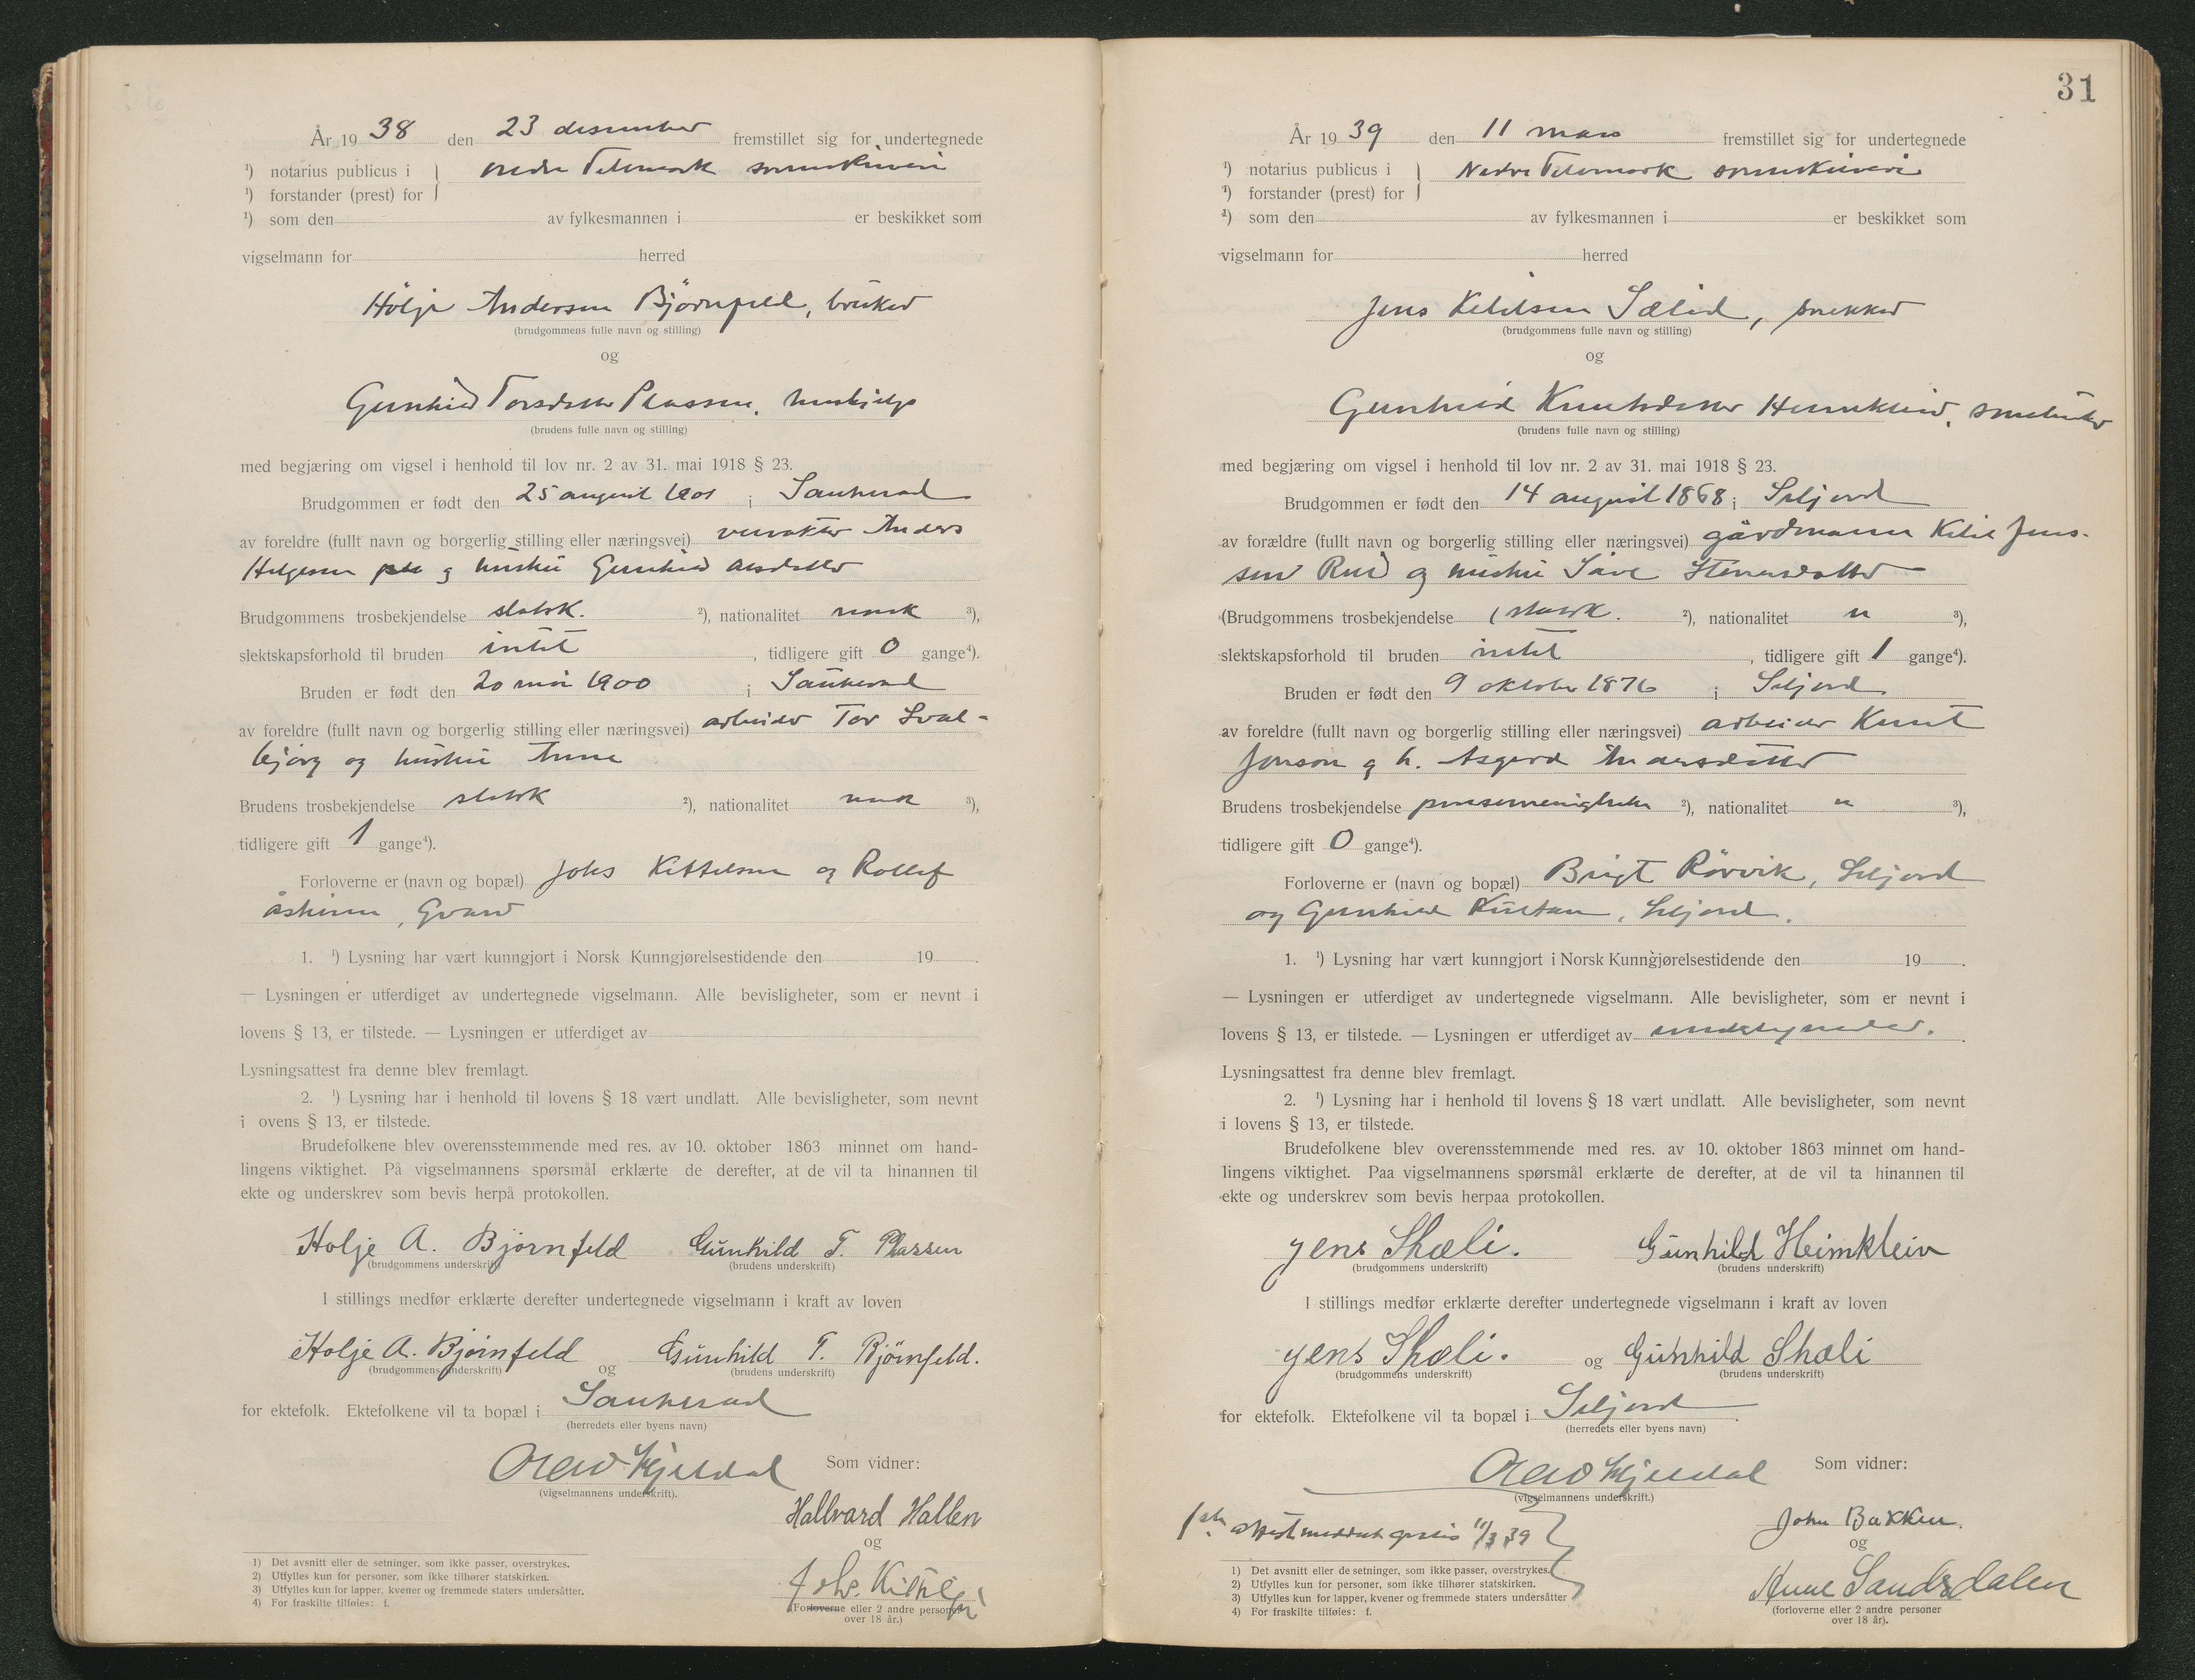 År 19 38 den 23 desember fremstillet sig for undertegnede
¹) notarius publicus i } nedre Telemark sorenskriveri
¹) forstander (prest) for }
¹) som den av fylkesmannen i er beskikket som
vigselmann for herred
Hölje Andersen Björnfeld, bruker
(brudgommens fulle navn og stilling)
og
Gunhild Torsdatter Plassen, hushjelp
(brudens fulle navn og stilling)
med begjæring om vigsel i henhold til lov nr. 2 av 31. mai 1918 § 23.
Brudgommen er født den 25 august 1901 i Sauherad
av foreldre (fullt navn og borgerlig stilling eller næringsvei) Anders
Helgesen og hustru Gunhild
Brudgommens trosbekjendelse statsk. ²), nationalitet norsk ³),
slektskapsforhold til bruden intet, tidligere gift 0 gange⁴).
Bruden er født den 20 mai 1900 i Sauherad
av foreldre (fullt navn og borgerlig stilling eller næringsvei) arbeider Tor Sval-
bjørg og hustru Anne
Brudens trosbekjendelse statsk ²), nationalitet norsk ³),
tidligere gift 1 gange⁴).
Forloverne er (navn og bopæl) Johs Kittelsen og Rollef
Åsheim, Gvarv
1. ¹) Lysning har vært kunngjort i Norsk Kunngjørelsestidende den 19 .
— Lysningen er utferdiget av undertegnede vigselmann. Alle bevisligheter, som er nevnt i
lovens § 13, er tilstede. — Lysningen er utferdiget av
Lysningsattest fra denne blev fremlagt.
2. ¹) Lysning har i henhold til lovens § 18 vært undlatt. Alle bevisligheter, som nevnt
i ovens § 13, er tilstede.
Brudefolkene blev overensstemmende med res. av 10. oktober 1863 minnet om hand-
lingens viktighet. På vigselmannens spørsmål erklærte de derefter, at de vil ta hinannen til
ekte og underskrev som bevis herpå protokollen.
Holje A. Bjørnfeld Gunhild T. Plassen
(brudgommens underskrift) (brudens underskrift)
I stillings medfør erklærte derefter undertegnede vigselmann i kraft av loven
Holje A. Bjørnfeld og Gunhild T. Björnfeld.
(brudgommens underskrift) (brudens underskrift)
for ektefolk. Ektefolkene vil ta bopæl i Sauherad
(herredets eller byens navn)
Olav Kjeldal Som vidner:
(vigselmannens underskrift).
Hallvard Hallen
og
Johs. Kittilsen
(Forloverne eller 2 andre personer
over 18 år.)
1) Det avsnitt eller de setninger, som ikke passer, overstrykes.
2) Utfylles kun for personer, som ikke tilhører statskirken.
3) Utfylles kun for lapper, kvener og fremmede staters undersåtter.
4) For fraskilte tilføies: f.
31
År 19 39 den 11 mars fremstillet sig for undertegnede
¹) notarius publicus i } Nedre Telemark sorenskriveri
¹) forstander (prest) for }
²) som den av fylkesmannen i er beskikket som
vigselmann for herred
Jens Ketilsen Sælid, snekker
(brudgommens fulle navn og stilling)
og
Gunhild Knutsdatter Heimklein,
(brudens fulle navn og stilling)
med begjæring om vigsel i henhold til lov nr. 2 av 31. mai 1918 § 23.
Brudgommen er født den 14 august 1868 i Seljord
av forældre (fullt navn og borgerlig stilling eller næringsvei) gårdmann Ketil Jens-
sen Rui og hustru
(Brudgommens trosbekjendelse statsk. ²), nationalitet n ³),
slektskapsforhold til bruden intet, tidligere gift 1 gange⁴).
Bruden er født den 9 oktober 1876 i Seljord
av foreldre (fullt navn og borgerlig stilling eller næringsvei) arbeider Knut
Jonson og h. Asgerd
Brudens trosbekjendelse pinsemenigheten ²), nationalitet n ³),
tidligere gift 0 gange⁴).
Forloverne er (navn og bopæl) Brigt Rörvik, Seljord
og Gunhild, Seljord.
1. ¹) Lysning har vært kunngjort i Norsk Kunngjørelsestidende den 19 .
— Lysningen er utferdiget av undertegnede vigselmann. Alle bevisligheter, som er nevnt i
lovens § 13, er tilstede. — Lysningen er utferdiget av undertegnede.
Lysningsattest fra denne blev fremlagt.
2. ¹) Lysning har i henhold til lovens § 18 vært undlatt. Alle bevisligheter, som nevnt
i lovens § 13, er tilstede.
Brudefolkene blev overensstemmende med res. av 10. oktober 1863 minnet om hand-
lingens viktighet. Paa vigselmannens spørsmål erklærte de derefter, at de vil ta hinannen til
ekte og underskrev som bevis herpaa protokollen.
Jens Skæli. Gunhild Heimklein
(brudgommens underskrift) (brudens underskrift)
I stillings medfør erklærte derefter undertegnede vigselmann i kraft av loven
Jens Skæli. og Gunhild Skæli
(brudgommens underskrift) (brudens underskrift)
for ektefolk. Ektefolkene vil ta bopæl i Seljord.
(herredets eller byens navn)
Olav Kjeldal Som vidner:
(vigselmannens underskrift.)
1 stk. attest meddelt gratis 11/3 39
John Bakken.
og
Anne Sandsdalen
(forloverne eller 2 andre personer
over 18 år).
1) Det avsnitt eller de setninger, som ikke passer, overstrykes.
2) Utfylles kun for personer, som ikke tilhører statskirken.
3) Utfylles kun for lapper, kvener og fremmede staters undersåtter
4) For fraskilte tilføies: f.